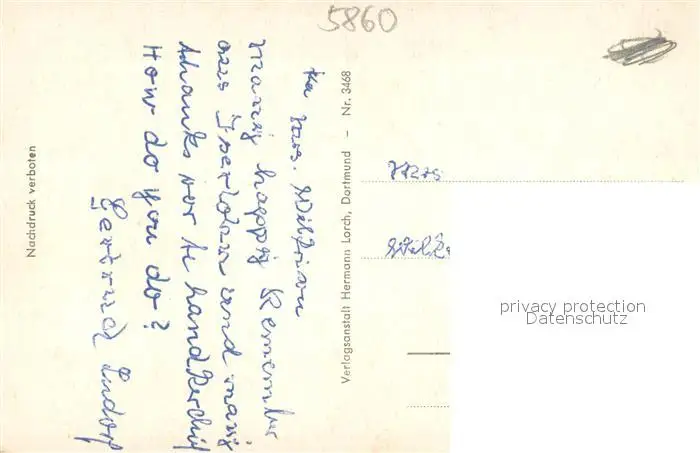 5860
Mrs. Wilkinson
Many happy Remember
aus Iserlohn und many
thanks vor te handkerchif
How do you do?
Gertrud Ludorf
Nachdruck verboten
Verlagsanstalt Hermann Lorch, Dortmund – Nr. 3468
Mrs
privacy protection
Datenschutz